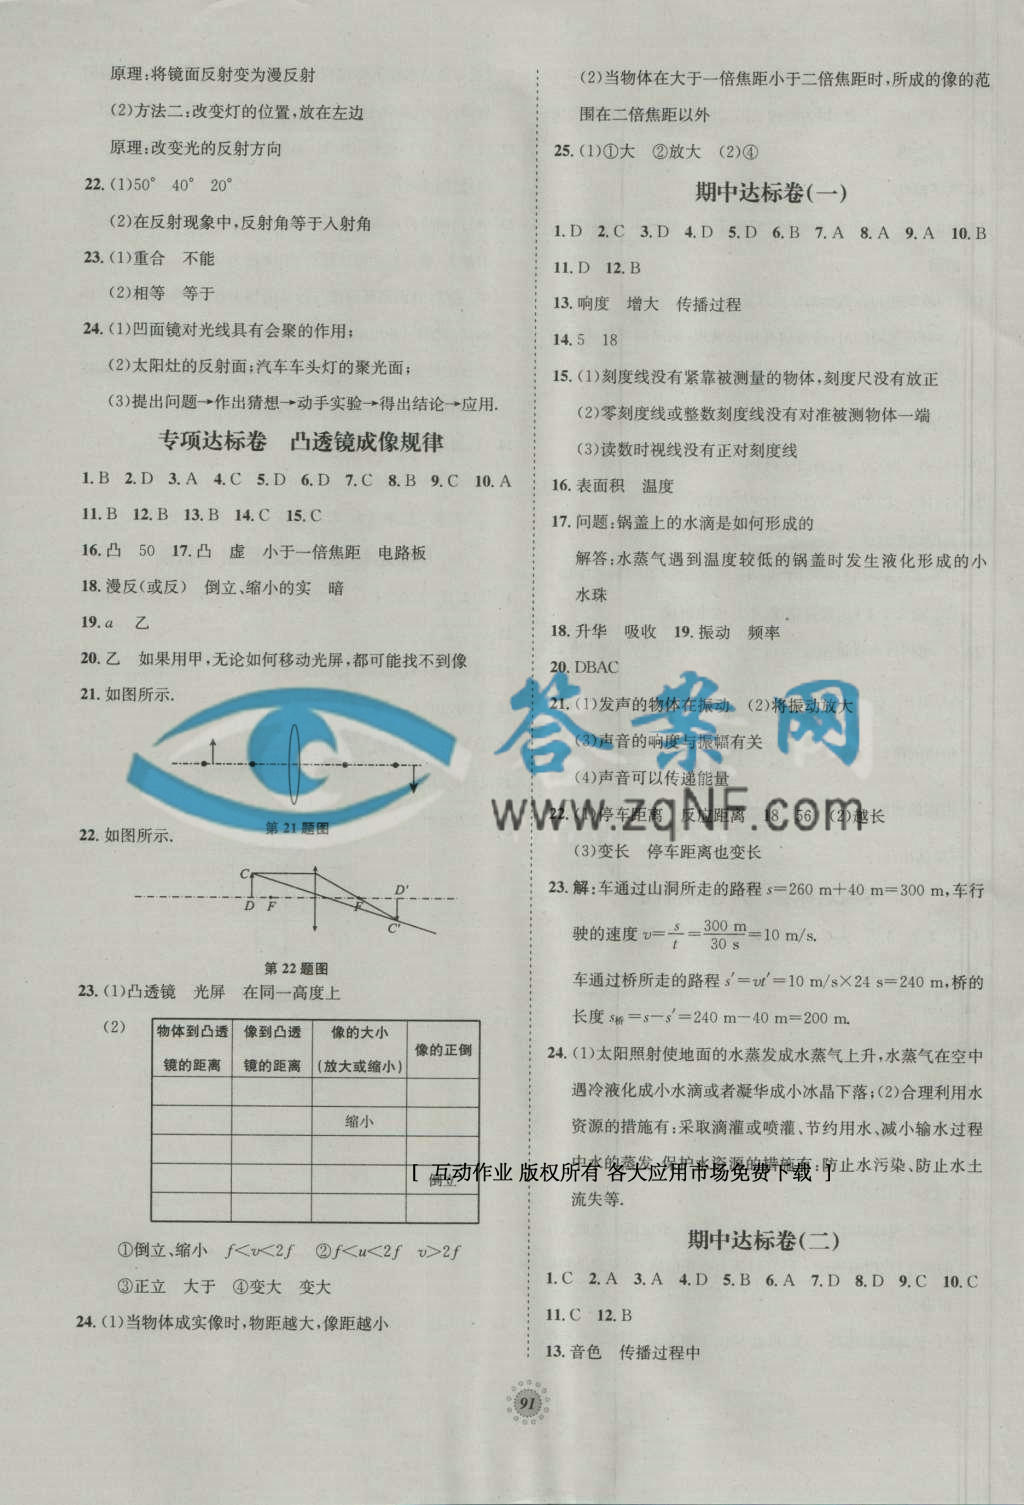 原理:将镜面反射变为漫反射
(2)方法二:改变灯的位置,放在左边
原理:改变光的反射方向
22.(1)50° 40° 20°
(2)在反射现象中,反射角等于入射角
23.(1)重合 不能
(2)相等 等于
24.(1)凹面镜对光线具有会聚的作用;
(2)太阳灶的反射面;汽车车头灯的聚光面;
(3)提出问题→作出猜想→动手实验→得出结论→应用.
专项达标卷 凸透镜成像规律
1.B 2.D 3.A 4.C 5.D 6.D 7.C 8.B 9.C 10.A
11.B 12.B 13.B 14.C 15.C
16.凸 50 17.凸 虚 小于一倍焦距 电路板
18.漫反(或反) 倒立、缩小的实 暗
19.a 乙
20.乙 如果用甲,无论如何移动光屏,都可能找不到像
21.如图所示.
第21题图
22.如图所示.
C D F F D' C'
第22题图
23.(1)凸透镜 光屏 在同一高度上
(2)
物体到凸透镜的距离 像到凸透镜的距离 像的大小(放大或缩小) 像的正倒
缩小
倒立
①倒立、缩小 f<v<2f ②f<u<2f v>2f
③正立 大于 ④变大 变大
24.(1)当物体成实像时,物距越大,像距越小
(2)当物体在大于一倍焦距小于二倍焦距时,所成的像的范
围在二倍焦距以外
25.(1)①大 ②放大 (2)④
期中达标卷(一)
1.D 2.C 3.D 4.D 5.D 6.B 7.A 8.A 9.A 10.B
11.D 12.B
13.响度 增大 传播过程
14.5 18
15.(1)刻度线没有紧靠被测量的物体,刻度尺没有放正
(2)零刻度线或整数刻度线没有对准被测物体一端
(3)读数时视线没有正对刻度线
16.表面积 温度
17.问题:锅盖上的水滴是如何形成的
解答:水蒸气遇到温度较低的锅盖时发生液化形成的小
水珠
18.升华 吸收 19.振动 频率
20.DBAC
21.(1)发声的物体在振动 (2)将振动放大
(3)声音的响度与振幅有关
(4)声音可以传递能量
22.(1)停车距离 反应距离 18 56 (2)越长
(3)变长 停车距离也变长
23.解:车通过山洞所走的路程 s=260 m+40 m=300 m,车行
驶的速度 v=s/t=300 m/30 s=10 m/s.
车通过桥所走的路程 s′=vt′=10 m/s×24 s=240 m,桥的
长度 s桥=s-s′=240 m-40 m=200 m.
24.(1)太阳照射使地面的水蒸发成水蒸气上升,水蒸气在空中
遇冷液化成小水滴或者凝华成小冰晶下落;(2)合理利用水
资源的措施有:采取滴灌或喷灌、节约用水、减小输水过程
中水的蒸发.保护水资源的措施有:防止水污染、防止水土
流失等.
期中达标卷(二)
1.C 2.A 3.A 4.D 5.B 6.A 7.D 8.D 9.C 10.C
11.C 12.B
13.音色 传播过程中
91
答案网
www.zqNF.com
[ 互动作业 版权所有 各大应用市场免费下载 ]